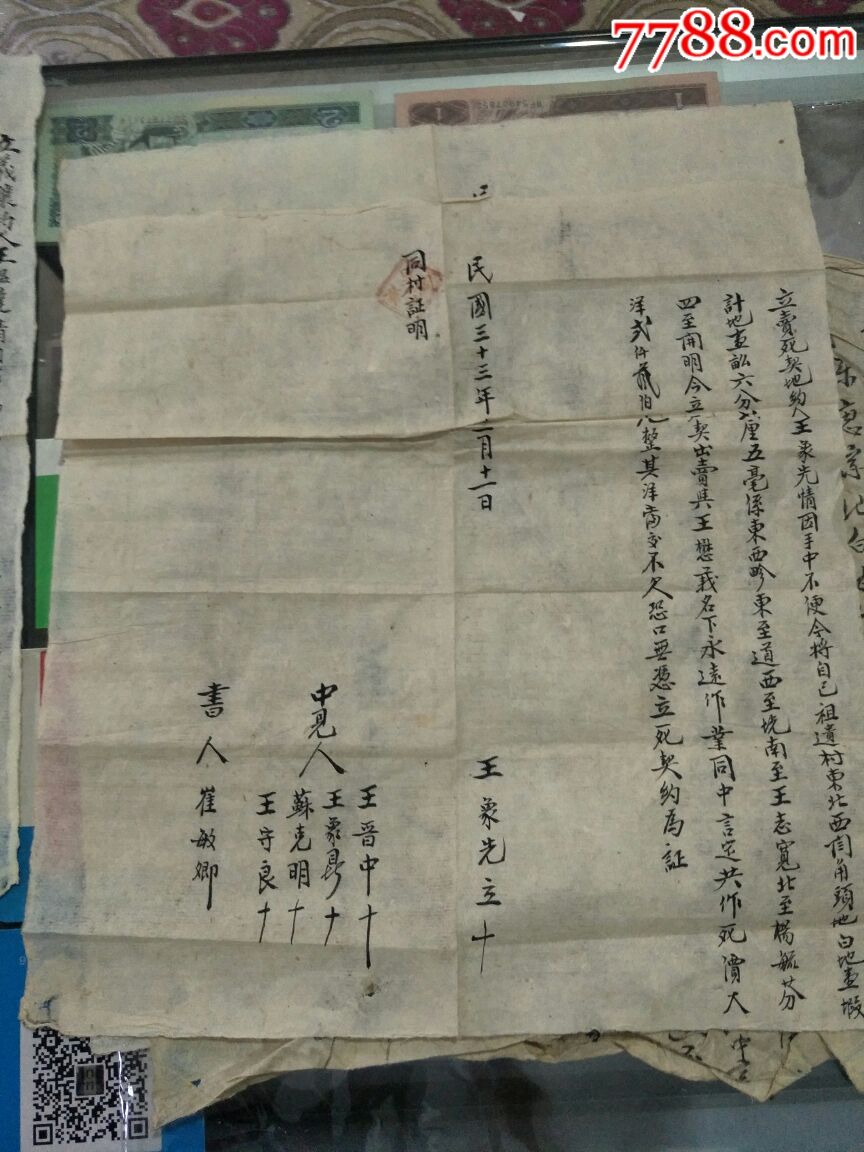 7788.com
立賣死契地約人王象先情因手中不便今將自己祖遺村東北西角頭地白地壹塅
計地壹畝六分厘五毫係東西畛東至道西至坑南至王志寬北至楊毓芬
四至開明今立契出賣與王懋義名下永遠作業同中言定共作死價大
洋弍仟貳佰元整其洋當交不欠恐口無憑立死契約為証
王象先立十
民國三十三年二月十一日
同村証明
中見人
王晋中十
王象昇十
蘇克明十
王守良十
書人 崔敏卿
立義